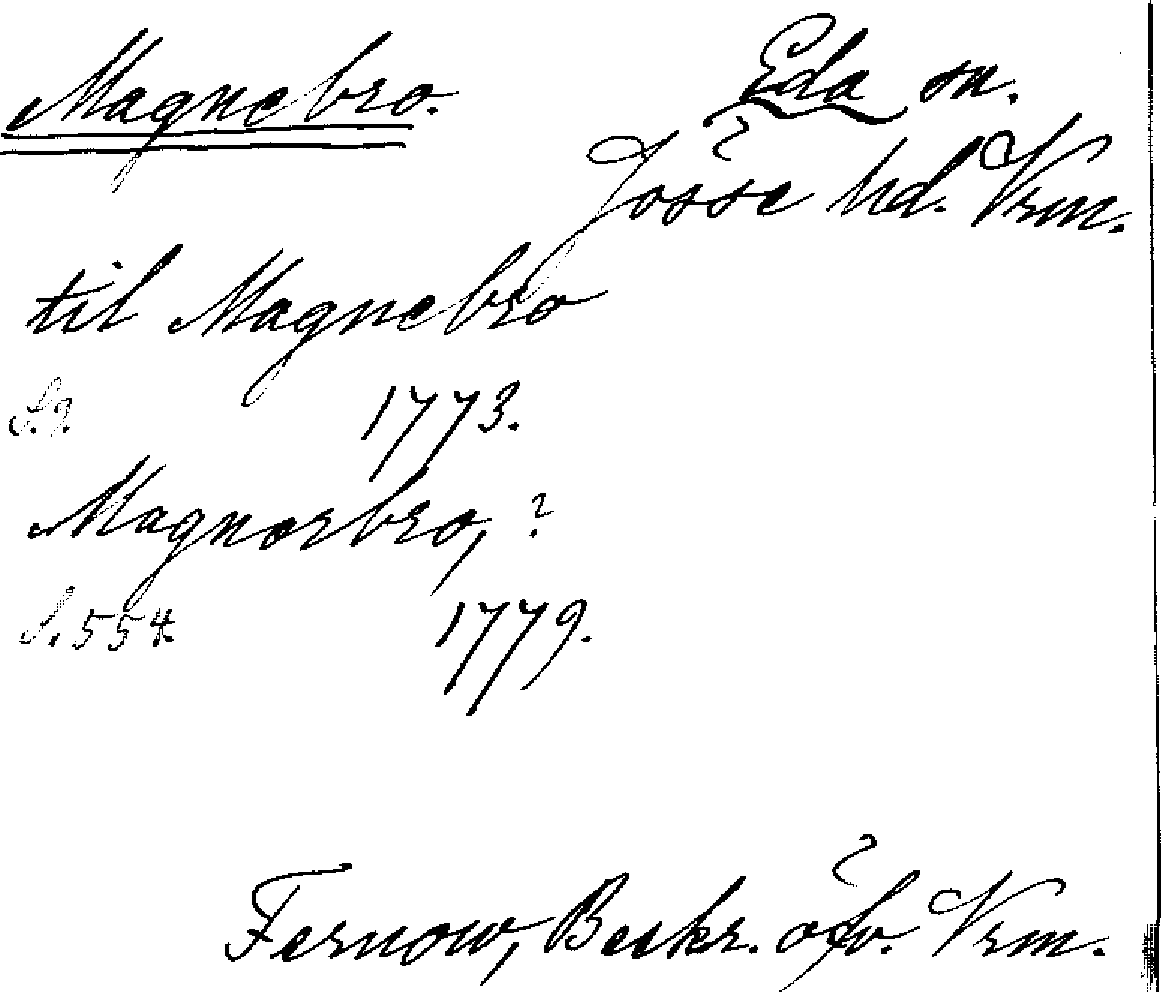 Magnebro. Eda sn.
Jösse hd. Vrm.
til Magnebro
S. 9. 1773.
Magnorbro, ?
S. 554. 1779.
Fernow, Beskr. öfv. Vrm.